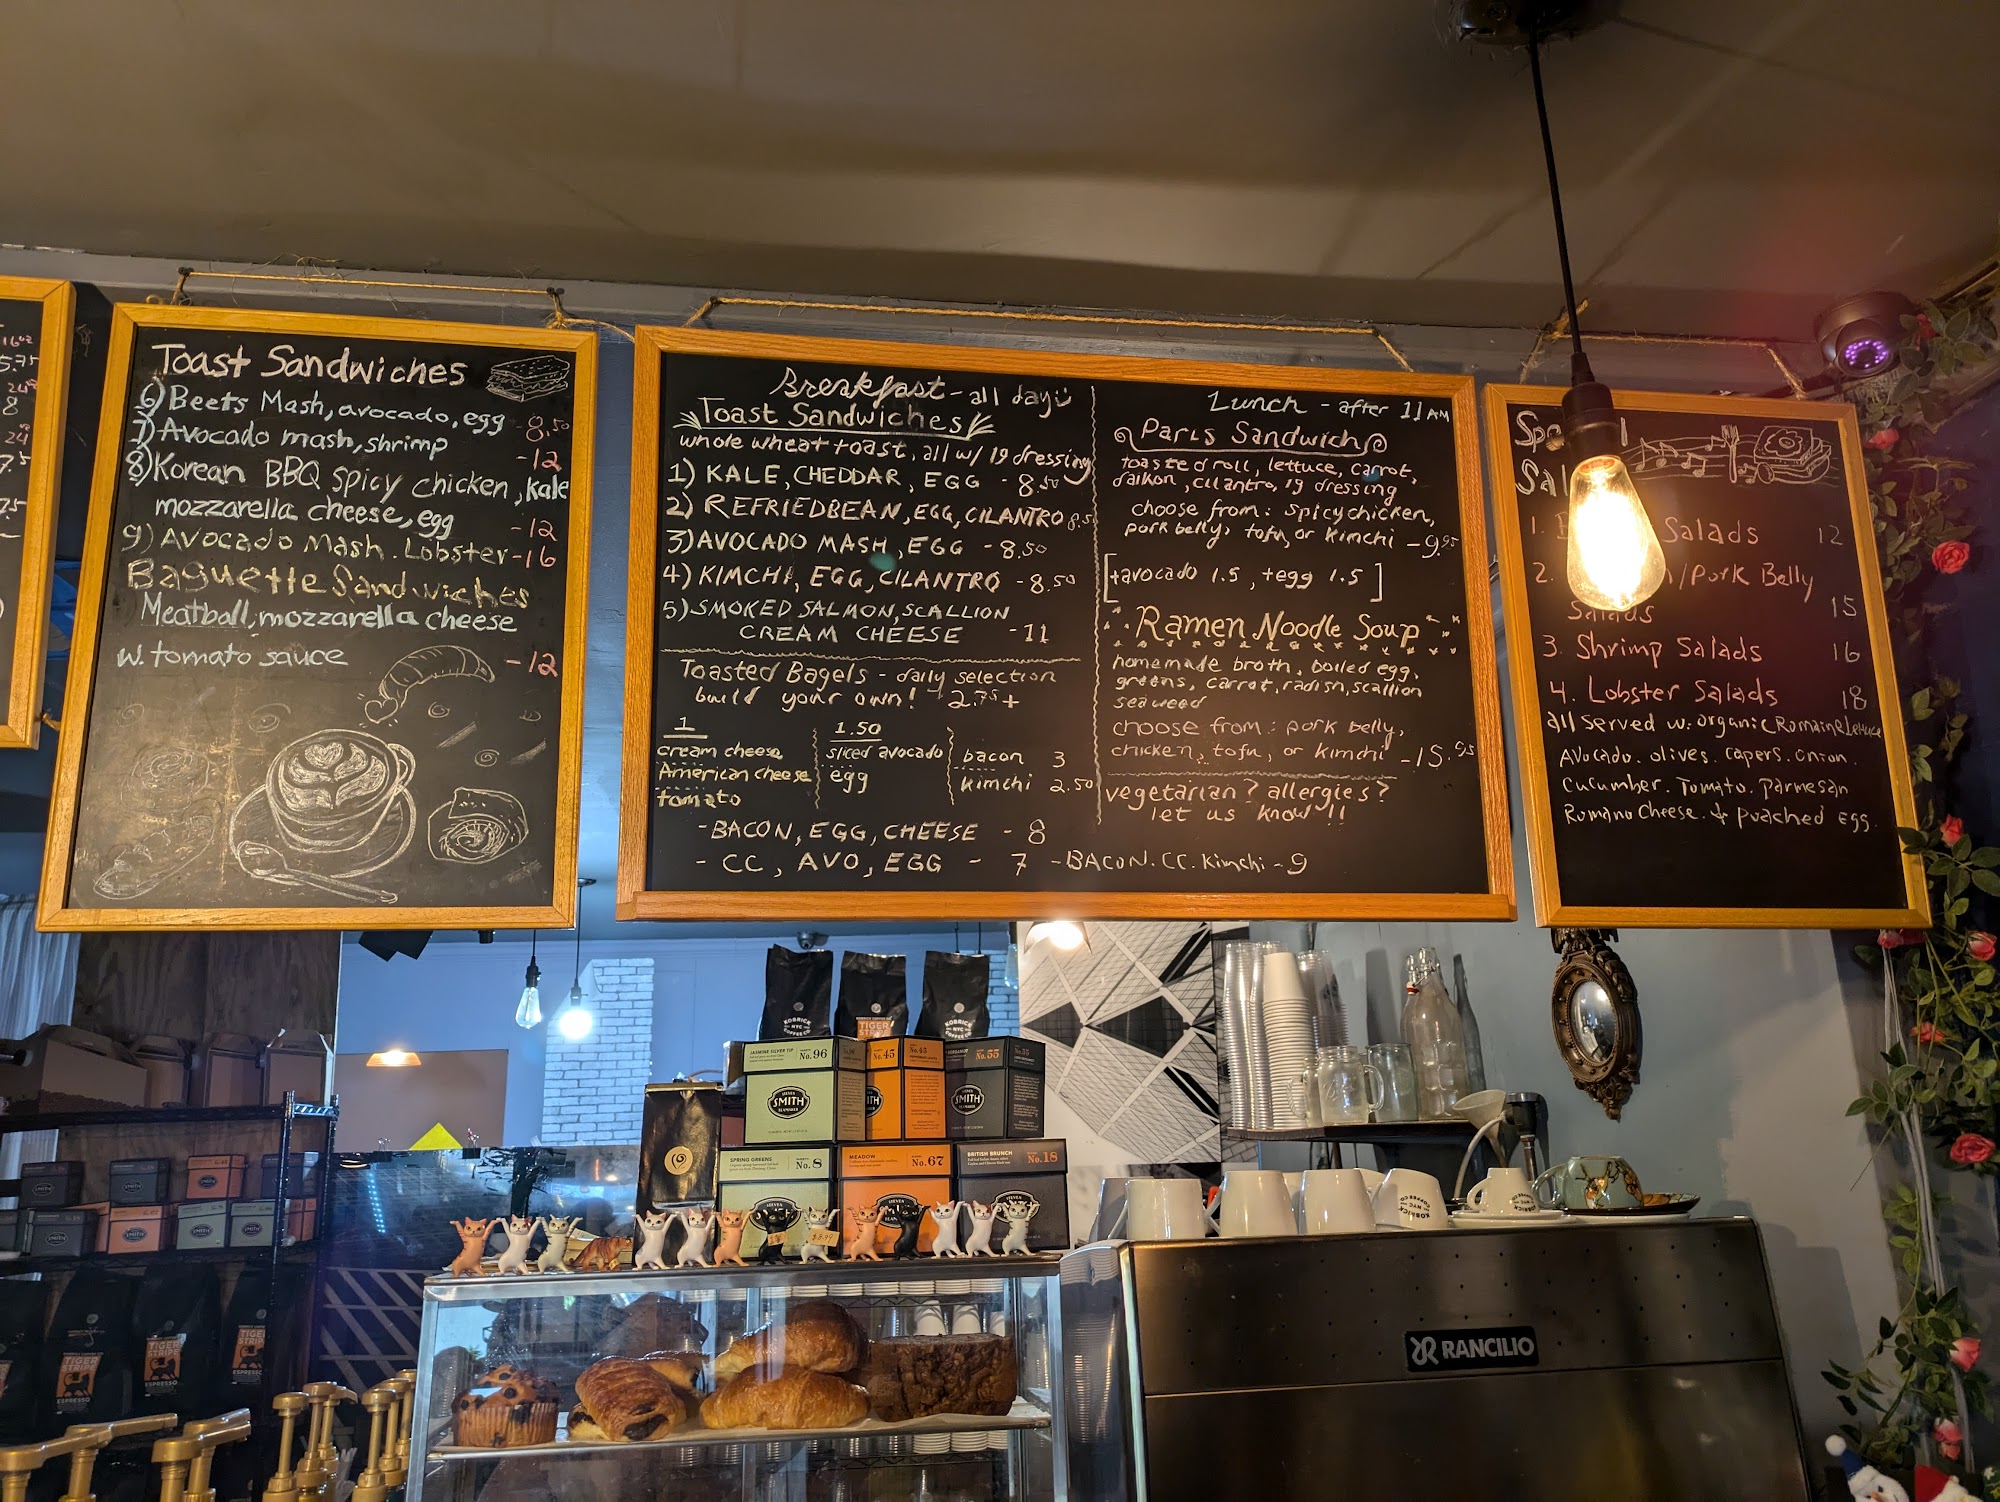 5.75
8
24
Toast Sandwiches
6) Beets Mash, avocado, egg - 8.50
7) Avocado mash, shrimp - 12
8) Korean BBQ spicy chicken, kale
mozzarella cheese, egg - 12
9) Avocado Mash. Lobster - 16
Baguette Sandwiches
Meatball, mozzarella cheese
w. tomato sauce - 12
Breakfast - all day
Toast Sandwiches
whole wheat toast, all w/ 19 dressing
1) KALE, CHEDDAR, EGG - 8.50
2) REFRIEDBEAN, EGG, CILANTRO 8.5
3) AVOCADO MASH, EGG - 8.50
4) KIMCHI, EGG, CILANTRO - 8.50
5) SMOKED SALMON, SCALLION
CREAM CHEESE - 11
Toasted Bagels - daily selection
build your own! 2.75+
1
cream cheese
American cheese
tomato
1.50
sliced avocado
egg
bacon 3
kimchi 2.50
- BACON, EGG, CHEESE - 8
- CC, AVO, EGG - 7 - BACON. CC. Kimchi - 9
Lunch - after 11AM
Paris Sandwich
toasted roll, lettuce, carrot,
daikon, cilantro, 19 dressing
choose from: spicy chicken,
pork belly, tofu, or kimchi - 9.95
[+avocado 1.5, +egg 1.5]
Ramen Noodle Soup
homemade broth, boiled egg,
greens, carrot, radish, scallion
seaweed
choose from: pork belly,
chicken, tofu, or kimchi - 15.95
vegetarian? allergies?
let us know!!
1. Salads 12
2. /Pork Belly
Salads 15
3. Shrimp Salads 16
4. Lobster Salads 18
all served w. organic Romaine Lettuce
Avocado. olives. capers. onion.
Cucumber. Tomato. parmesan
Romano Cheese. & poached Egg.
KOBRICK
NYC
COFFEE CO.
TIGER
STRIPE
KOBRICK
NYC
COFFEE CO.
JASMINE SILVER TIP No. 96
No. 45
No. 55
STEVEN
SMITH
TEAMAKER
SPRING GREENS No. 8
MEADOW No. 67
BRITISH BRUNCH No. 18
$8.99
SMITH
TIGER
STRIPE
ESPRESSO
TIGER
STRIPE
ESPRESSO
KOBRICK
NYC
COFFEE CO.
RANCILIO